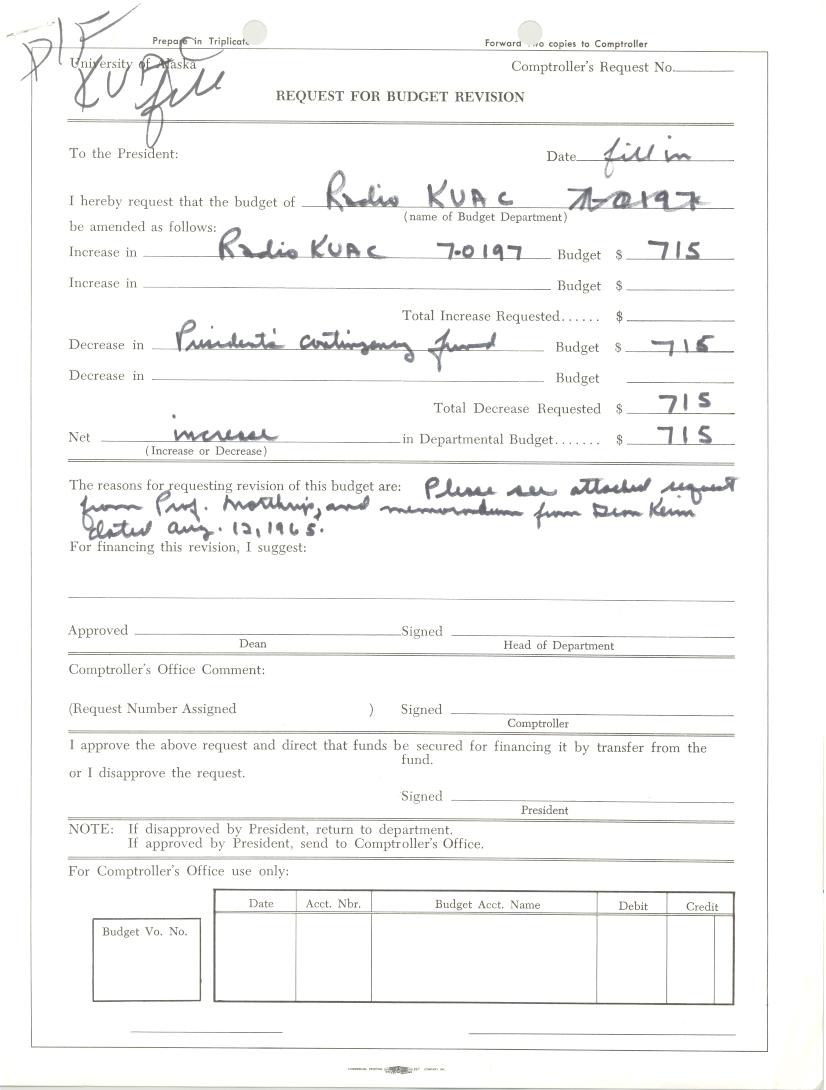 P/F
KUAC
file
Prepare in Triplicate
Forward Two copies to Comptroller
University of Alaska
Comptroller's Request No.
REQUEST FOR BUDGET REVISION
To the President:
Date fill in
I hereby request that the budget of Radio KUAC 7-0197
(name of Budget Department)
be amended as follows:
Increase in Radio KUAC 7-0197 Budget $ 715
Increase in Budget $
Total Increase Requested...... $
Decrease in President's contingency fund Budget $ 715
Decrease in Budget
Total Decrease Requested $ 715
Net increase in Departmental Budget....... $ 715
(Increase or Decrease)
The reasons for requesting revision of this budget are: Please see attached request
from Prof. Northrip, and memorandum from Dean Keim
dated Aug. 12, 1965.
For financing this revision, I suggest:
Approved Signed
Dean Head of Department
Comptroller's Office Comment:
(Request Number Assigned ) Signed
Comptroller
I approve the above request and direct that funds be secured for financing it by transfer from the
fund.
or I disapprove the request.
Signed
President
NOTE: If disapproved by President, return to department.
If approved by President, send to Comptroller's Office.
For Comptroller's Office use only:
Date Acct. Nbr. Budget Acct. Name Debit Credit
Budget Vo. No.